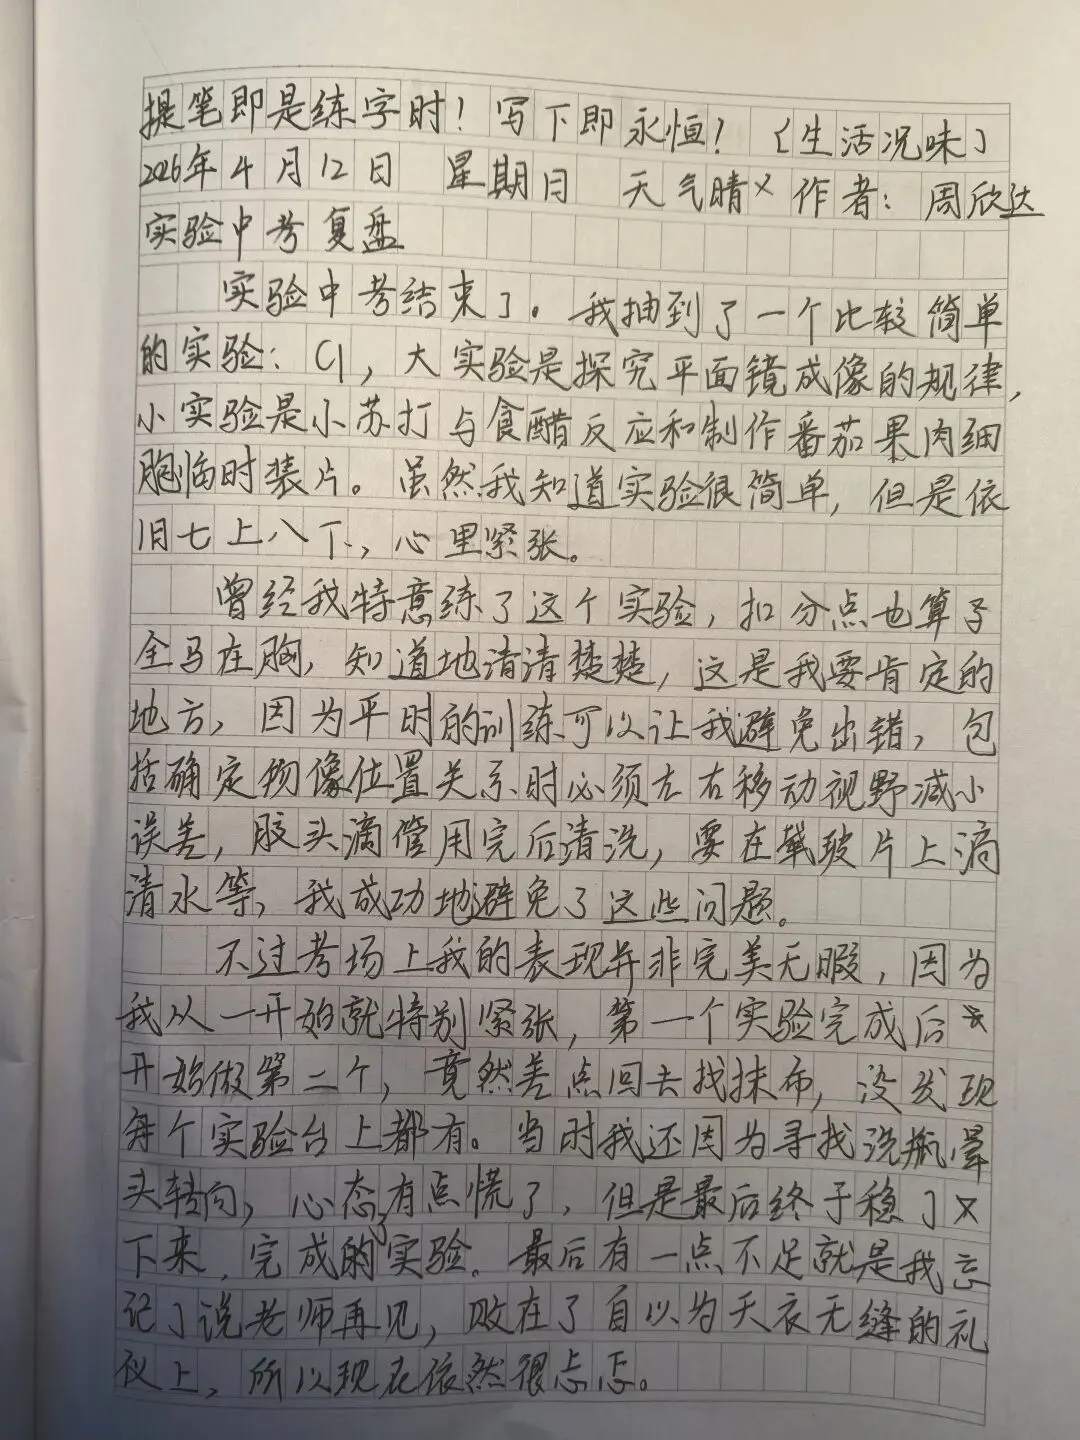 提笔即是练字时！写下即永恒！〔生活况味〕
2026年4月12日 星期日 天气晴 作者：周欣达
实验中考复盘
实验中考结束了。我抽到了一个比较简单
的实验：C1，大实验是探究平面镜成像的规律，
小实验是小苏打与食醋反应和制作番茄果肉细
胞临时装片。虽然我知道实验很简单，但是依
旧七上八下，心里紧张。
曾经我特意练了这个实验，扣分点也算子
全马在胸，知道地清清楚楚，这是我要肯定的
地方，因为平时的训练可以让我避免出错，包
括确定物像位置关系时必须左右移动视野减小
误差，胶头滴管用完后清洗，要在载玻片上滴
清水等，我成功地避免了这些问题。
不过考场上我的表现并非完美无暇，因为
我从一开始就特别紧张，第一个实验完成后
开始做第二个，竟然差点回去找抹布，没发现
每个实验台上都有。当时我还因为寻找洗瓶晕
头转向，心态有点慌了，但是最后终于稳了
下来，完成了实验。最后有一点不足就是我忘
记了说老师再见，败在了自以为天衣无缝的礼
仪上，所以现在依然很忐忑。